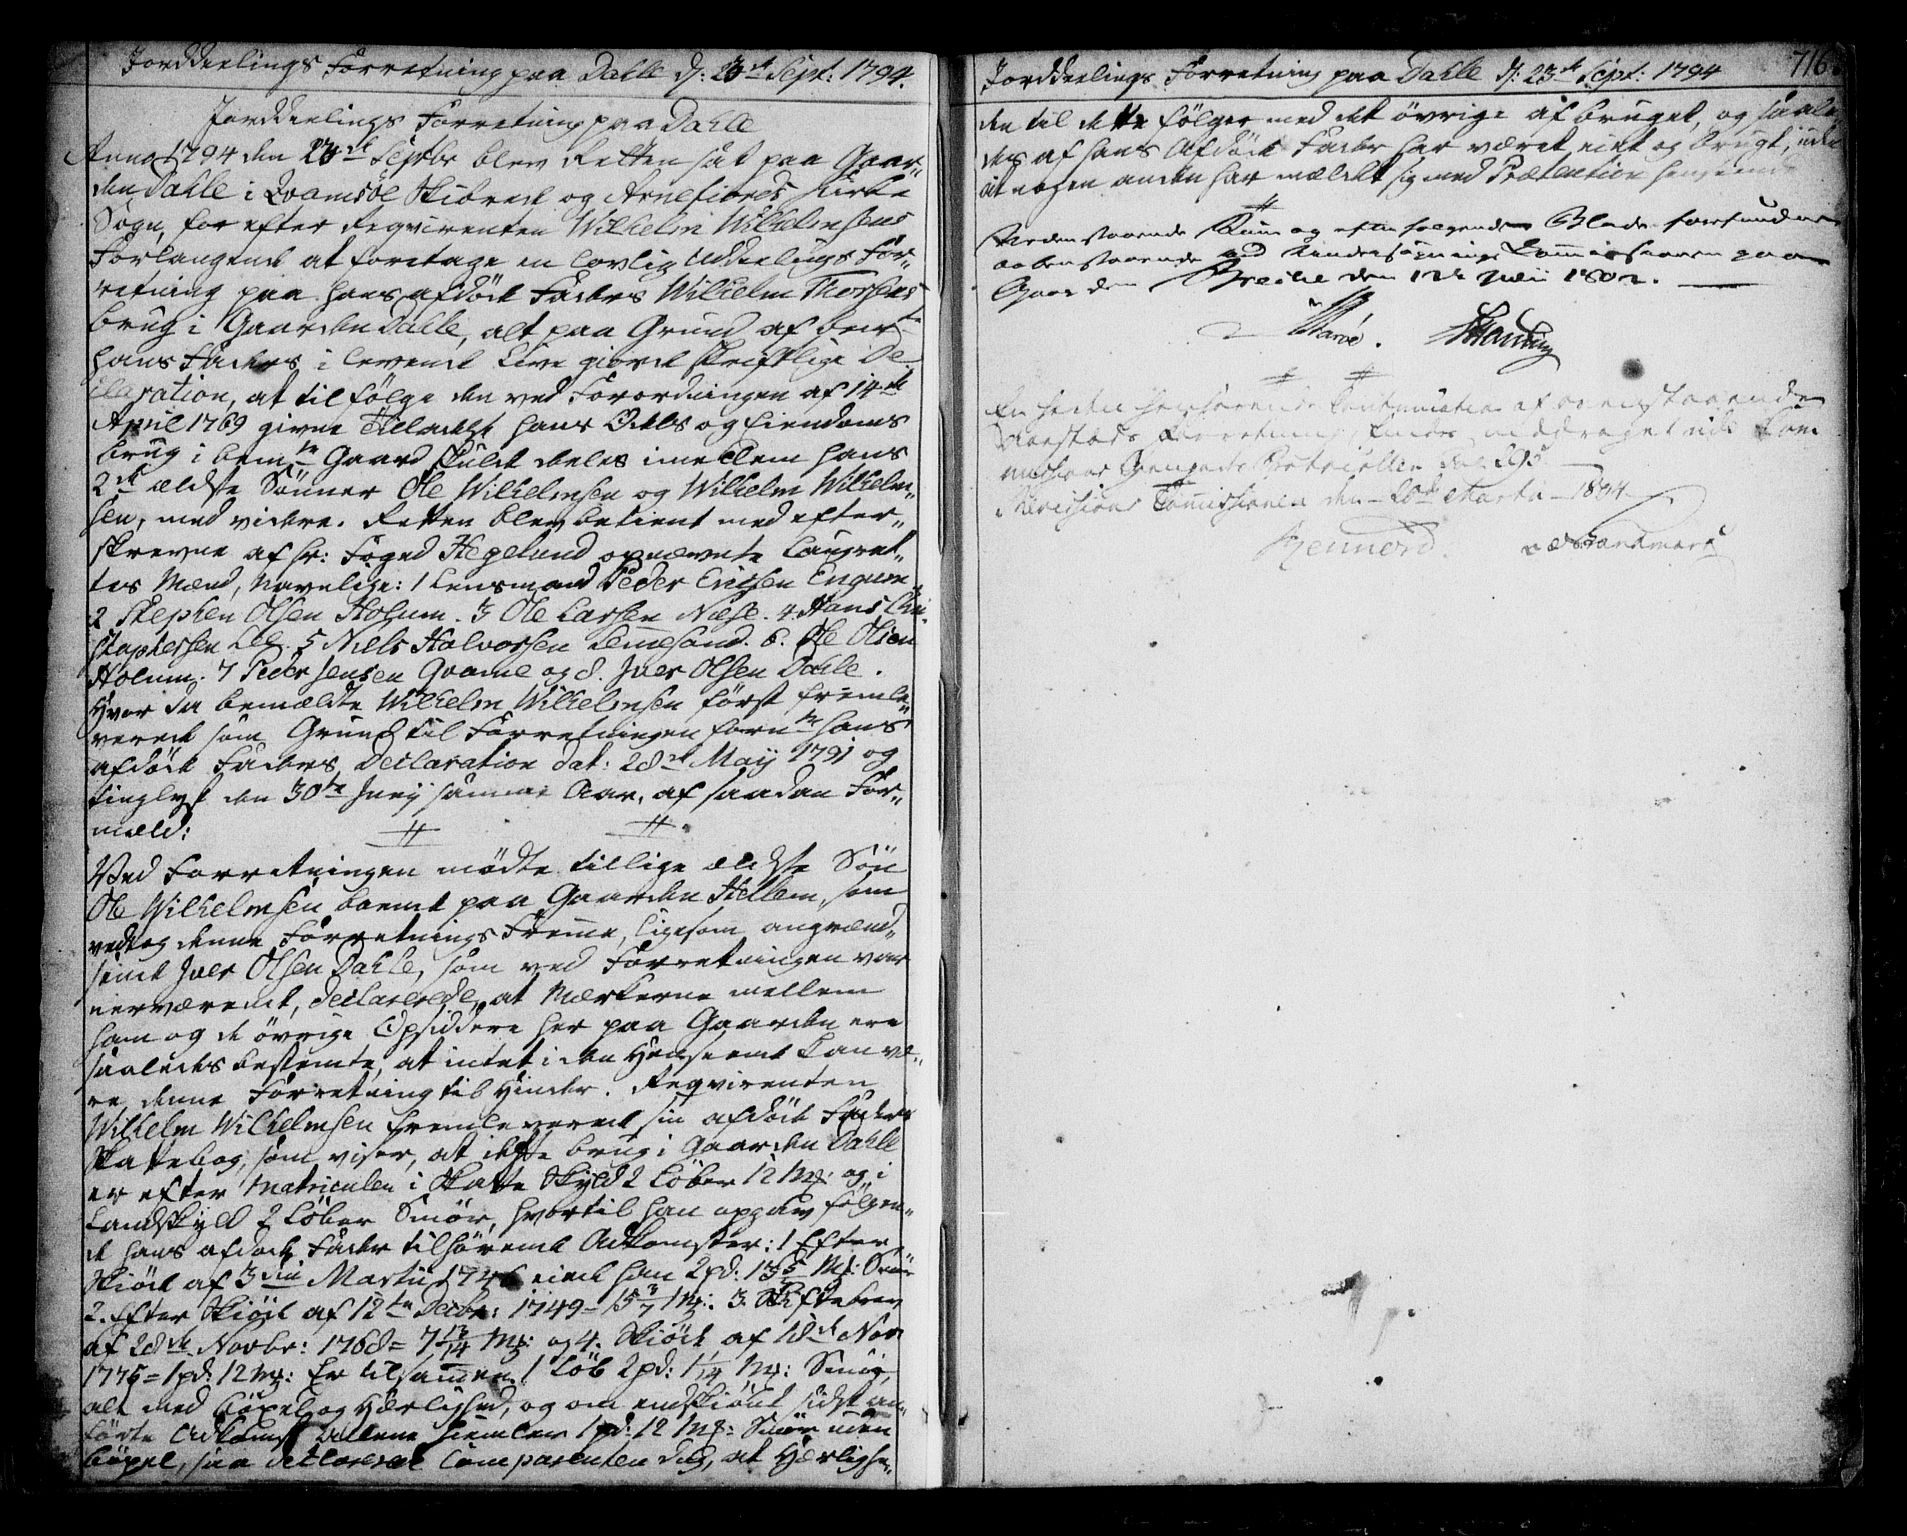 Jorddeelings Forretning paa Dahle d: 23de Sept: 1794.
Jorddeelings Forretning paa Dahle
Anno 1794 den 23de Septbr blev Retten sat paa Gaar„
den Dahle i Qvamsøe Skibrede og Arnefiords Kirke
Sogn, for efter Reqvirenten Wilhelm Wilhelmsens
Forlangende at foretage en lovlig Uddeelings For„
retning paa hans afdøde Faders Wilhelm Thorsens
brug i Gaarden Dahle, alt paa Grund af bem.te
hans Faders i levende Live giorde skriftlige De„
claration, at til følge den ved Forordningen af 14de
April 1769 givne Tilladelse hans Odels og Eiendoms
brug i bem.te Gaard skulde deeles imellem hans
2de ældste Sønner Ole Wilhelmsen og Wilhelm Wilhelm„
sen, med videre. Retten blev betient med efter„
skrevne af Hr: Foged Hegelund opnævnte Laugret„
tes Mænd, navnlige: 1 Lensmand Peder Ericsen Engum
2 Stephen Olsen Holum. 3 Ole Larsen Næse. 4. Hans Chri„
stophersen 5 Niels Halvorsen 6. Ole Olsen
Holum. 7 Peder Jensen og 8. Iver Olsen Dahle.
Hvor da bemældte Wilhelm Wilhelmsen først fremle„
verede som Grund til Forretningen forn.te hans
afdøde Faders Declaration dat: 28de May 1791 og
tinglyst den 30te Junij samme Aar, af saadan For„
meld:
# #
Ved Forretningen mødte tillige ældste Søn
Ole Wilhelmsen boende paa Gaarden Hellem, som
vedtog denne Forretnings Fremme, ligesom angrænd„
sende Iver Olsen Dahle, som ved Forretningen var
nærværende, declarerede, at Merkerne mellem
ham og de øvrige Opsiddere her paa Gaarden ere
saaledes bestemte, at intet i den Henseende kan væ„
re denne Forretning til Hinder. Reqvirenten
Wilhelm Wilhelmsen fremleverede sin afdøde Faders
Skattebog, som viser, at dette brug i Gaarden Dahle
er efter Matriculen i Skatte Skyld 2 Løber 12 Mk: og i
Landskyld 2 Løber Smør, hvortil han opgav følgen„
de hans afdøde Fader tilhørende Adkomster: 1 Efter
Skiøde af 3die Martii 1746 eiede han 2 pd: Mk: Smør
2. Efter Skiøde af 12te Decbr: 1749 = 15 3/7 Mk: 3. Skiftebrev
af 28de Novbr: 1768 = 7 13/14 Mk: og 4. Skiøde af 18de Nov
1775 = 1 pd: 12 Mk: Er tilsammen 1 Løb 2 pd: 1 1/14 Mk: Smør,
alt med Bøxel og Herlighed, og om endskiønt sidst an„
førte Adkomst allene hiemler 1 pd: 12 Mk: Smør uden
bøxel, saa declarerede Comparenten dog, at Herlighe„
Jorddeelings Forretning paa Dahle d: 23de Sept: 1794
716
den til dette følger med det øvrige af bruget, og saale„
des af hans afdøde Fader har været eiet og brugt, uden
at nogen anden har mældet sig med Prætention
#
Nedenstaaende Rum og efterfølgende Blade forefundes
aabenstaaende ved Undersøgnings Commissionen paa
Gaarden den 12te Julii 1802.
# #
En herden henhørende Continuation af ovenstaaende
Aaestæds Forretning findes inddraget udi Com
missions Protocollen
i Revisions Commissionen den 20de Martii 1804